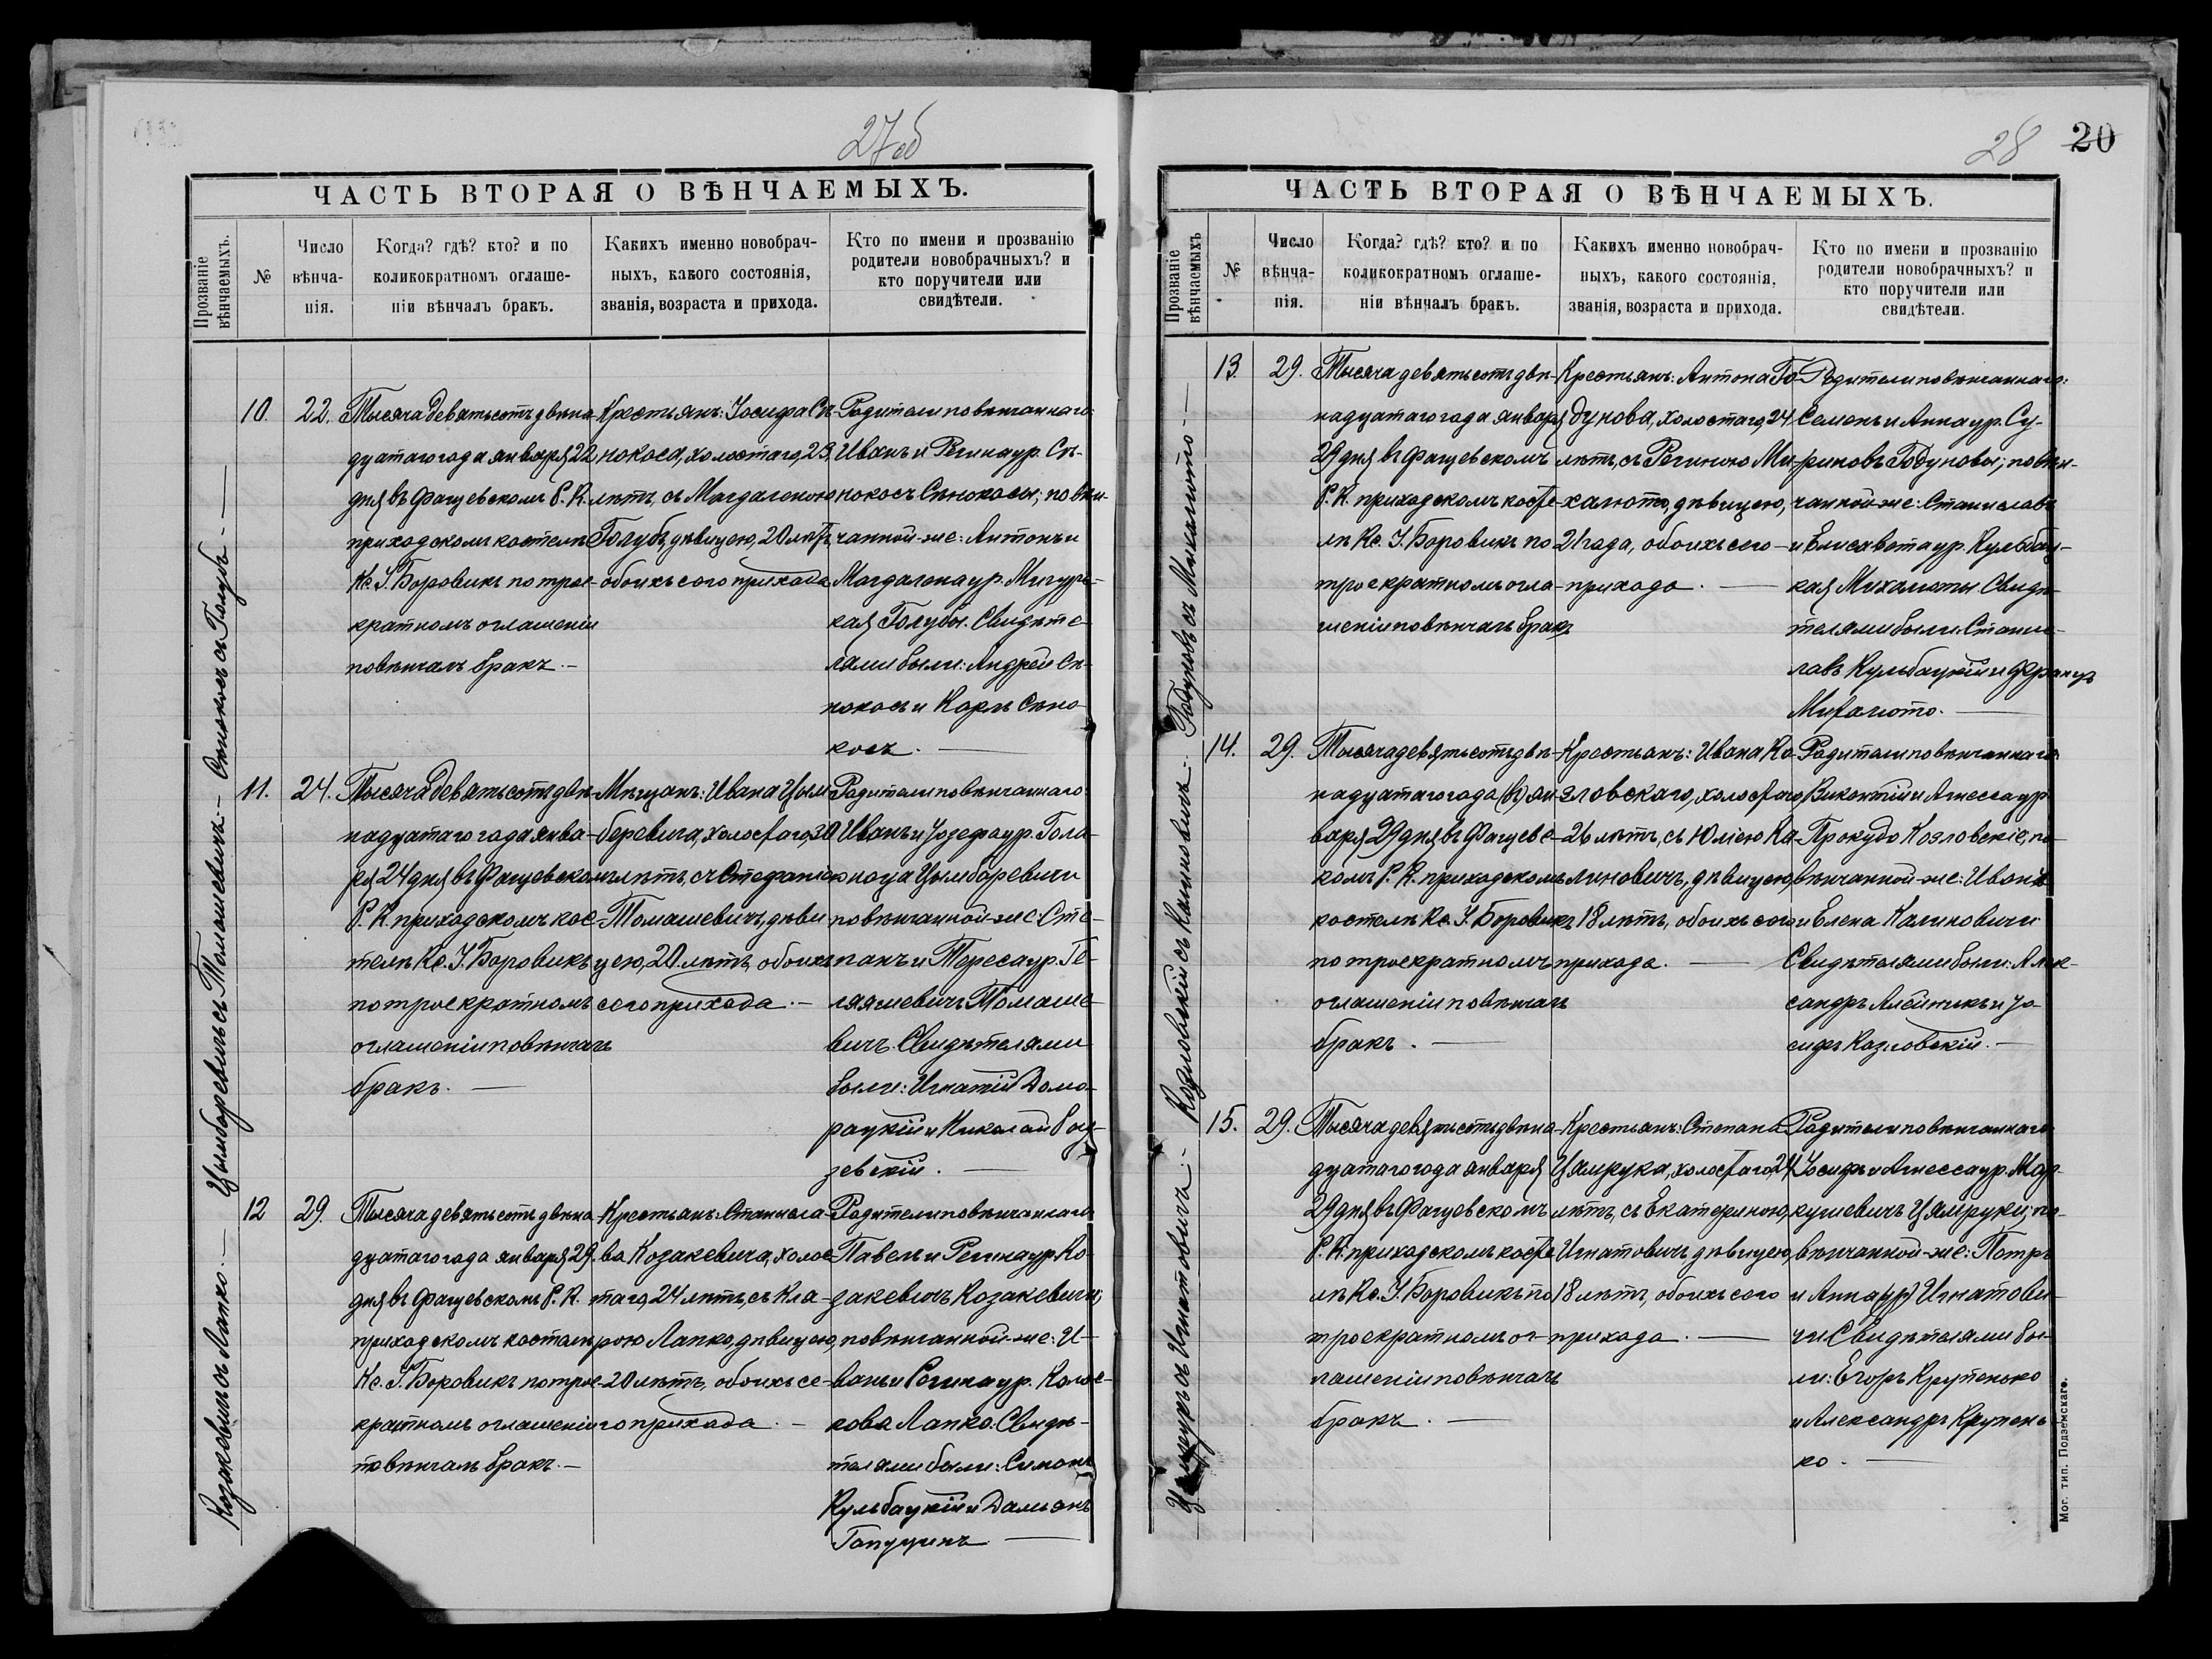 27об
ЧАСТЬ ВТОРАЯ О ВѢНЧАЕМЫХЪ.
Прозваніе вѣнчаемыхъ.
№
Число вѣнча-нія.
Когда? гдѣ? кто? и по
коликократномъ оглаше-
ніи вѣнчалъ бракъ.
Какихъ именно новобрач-
ныхъ, какого состоянія,
званія, возраста и прихода.
Кто по имени и прозванію
родители новобрачныхъ? и
кто поручители или
свидѣтели.
Сѣнокосъ съ Голубъ
10.
22.
Тысяча девятьсотъ двѣна-
дцатаго года января 22
дня въ Фащевскомъ Р. К.
приходскомъ костелѣ
Кс. І. Боровикъ по трое-
кратномъ оглашеніи
повѣнчалъ бракъ.
Крестьянъ: Іосифа Сѣ-
нокоса, холостаго, 23
лѣтъ, съ Магдаленою
Голубъ, дѣвицею, 20 лѣтъ,
обоихъ сего прихода
Родители повѣнчаннаго
Иванъ и Регина ур. Сѣ-
нокосъ Сѣнокосы; повѣн-
чанной-же: Антонъ и
Магдалена ур. Мигур-
кая Голубы. Свидѣте-
лями были: Андрей Сѣ-
нокосъ и Карлъ Сѣно-
косъ.
Цымборевичъ съ Томашевичъ
11.
24.
Тысяча девятьсотъ двѣ-
надцатаго года янва-
ря 24 дня въ Фащевскомъ
Р. К. приходскомъ кос-
телѣ Кс. І. Боровикъ
по троекратномъ
оглашеніи повѣнчалъ
бракъ.
Мѣщанъ: Ивана Цым-
беревича, холостаго, 30
лѣтъ, съ Стефаніею
Томашевичъ, дѣви-
цею, 20 лѣтъ, обоихъ
сего прихода.
Родители повѣнчаннаго
Иванъ и Іозефа ур.
Цымборевичи
повѣнчанной-же: Сте-
панъ и Тереса ур. Ге-
ляшевичъ Томаше-
вичъ. Свидѣтелями
были: Игнатій Домо-
рацкій и Николай
зевскій.
Козакевичъ съ Лапко.
12
29.
Тысяча девятьсотъ двѣна-
дцатаго года января 29
дня въ Фащевскомъ Р. К.
приходскомъ костелѣ
Кс. І. Боровикъ по трое-
кратномъ оглашеніи
повѣнчалъ бракъ.
Крестьянъ: Станисла-
ва Козакевича, холос-
таго, 24 лѣтъ, съ Кла-
рою Лапко, дѣвицею,
20 лѣтъ, обоихъ се-
го прихода.
Родители повѣнчаннаго
Павелъ и Регина ур. Ко-
закевичъ Козакевичи;
повѣнчанной-же: И-
ванъ и Регина ур. Колос-
кова Лапко. Свидѣ-
телями были: Симонъ
Кульбацкій и Дамьянъ
28
20
ЧАСТЬ ВТОРАЯ О ВѢНЧАЕМЫХЪ.
Прозваніе вѣнчаемыхъ
№
Число вѣнча-нія.
Когда? гдѣ? кто? и по
коликократномъ оглаше-
ніи вѣнчалъ бракъ.
Какихъ именно новобрач-
ныхъ, какого состоянія,
званія, возраста и прихода.
Кто по имени и прозванію
родители новобрачныхъ? и
кто поручители или
свидѣтели.
Годуновъ съ Михалюто
13.
29.
Тысяча девятьсотъ двѣ-
надцатаго года января
29 дня въ Фащевскомъ
Р. К. приходскомъ косте-
лѣ Кс. І. Боровикъ по
троекратномъ огла-
шеніи повѣнчалъ бракъ
Крестьянъ: Антона Го-
дунова, холостаго, 24
лѣтъ, съ Региною Ми-
халюто, дѣвицею,
21 года, обоихъ сего
прихода.
Родители повѣнчаннаго:
Семенъ и Анна ур. Су-
риновъ Годуновы; повѣн-
чанной-же: Станиславъ
и Елисавета ур. Кульбац-
кая Михалюты. Свидѣ-
телями были: Станис-
лавъ Кульбацкій и Францъ
Михалюто.
Козловскій съ Калиновичъ
14.
29.
Тысяча девятьсотъ двѣ-
надцатаго года ян-
варя 29 дня въ Фащевс-
комъ Р. К. приходскомъ
костелѣ Кс. І. Боровикъ
по троекратномъ
оглашеніи повѣнчалъ
бракъ.
Крестьянъ: Ивана Ко-
зловскаго, холостаго
26 лѣтъ, съ Юліею Ка-
линовичъ, дѣвицею
18 лѣтъ, обоихъ сего
прихода.
Родители повѣнчаннаго
Викентій и Агнесса ур.
Прокудо Козловскіе, по-
вѣнчанной-же: Иванъ
и Елена Калиновичи
Свидѣтелями были: Алек-
сандръ Алейникъ и Іо-
сифъ Козловскій.
съ Игнатовичъ
15.
29.
Тысяча девятьсотъ двѣна-
дцатаго года января
29 дня въ Фащевскомъ
Р. К. приходскомъ косте-
лѣ Кс. І. Боровикъ по
троекратномъ ог-
лашеніи повѣнчалъ
бракъ.
Крестьянъ: Степана
Цямрука, холостаго, 24
лѣтъ, съ Екатериною
Игнатовичъ, дѣвицею,
18 лѣтъ, обоихъ сего
прихода.
Родители повѣнчаннаго
Іосифъ и Агнесса ур. Мар-
кушевичъ Цямруки; по-
вѣнчанной-же: Петръ
и Анна (ур) Игнатови-
чи Свидѣтелями бы-
ли: Егоръ Крупенько
и Александръ Крупень-
ко.
Мог. тип. Подземскаго.